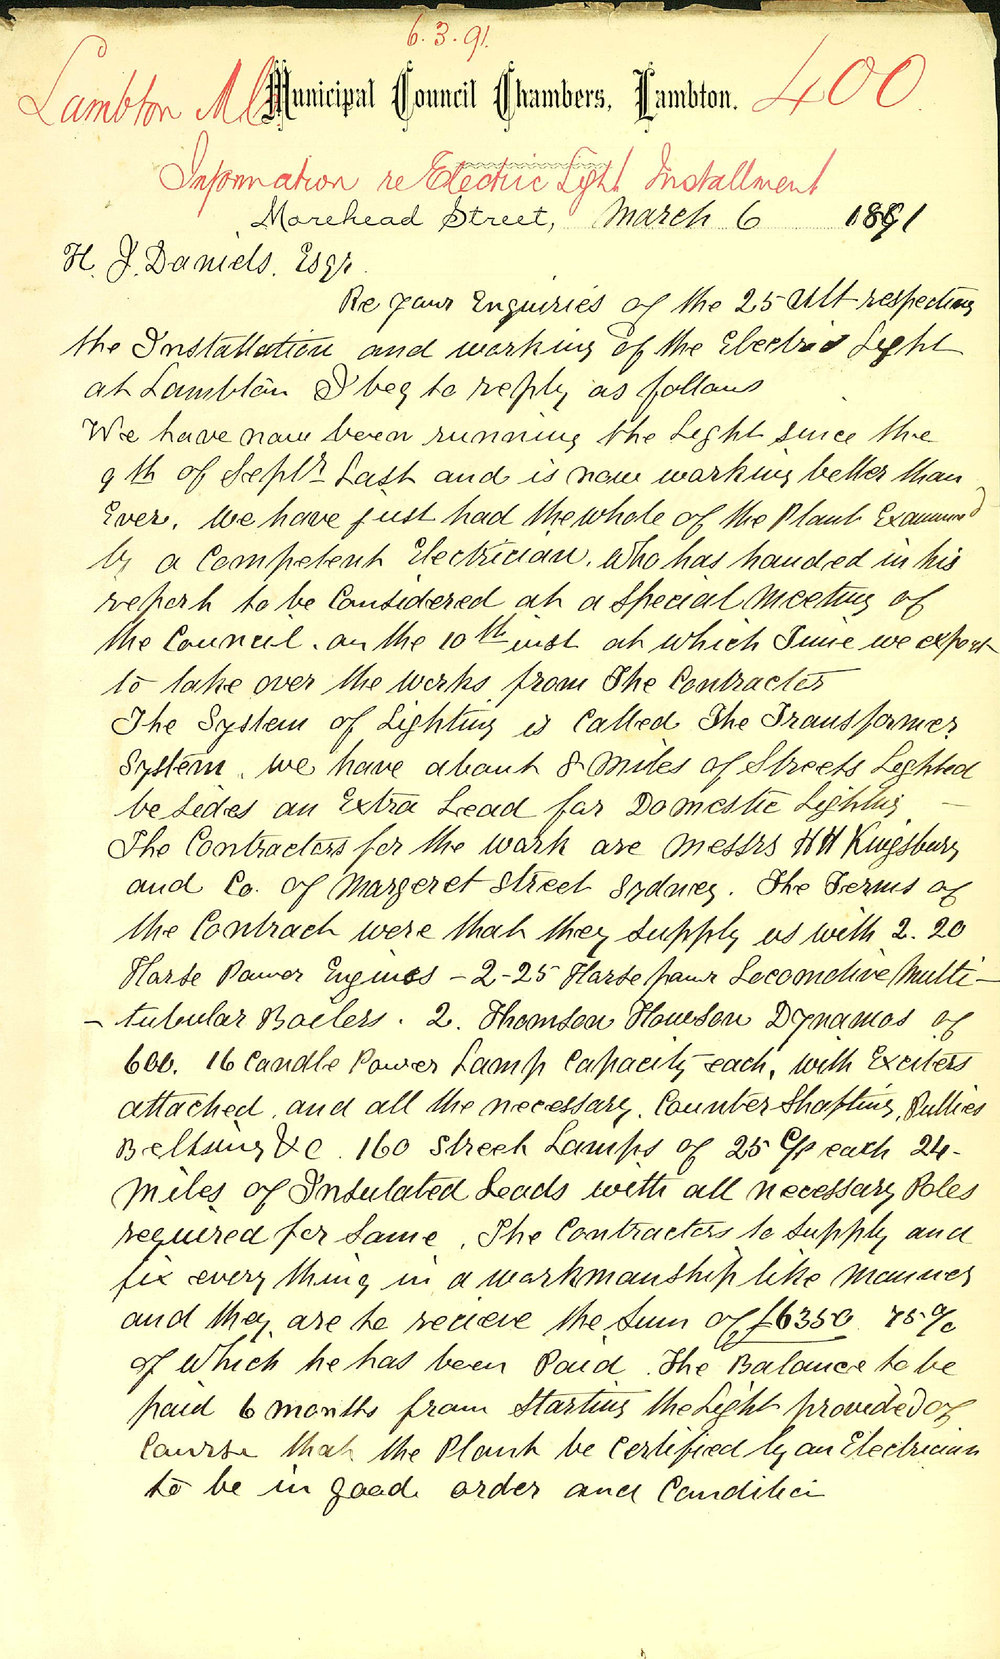 6.3.91.
Lambton M.C. Municipal Council Chambers, Lambton. 400
Information re Electric Light Installment
Morehead Street, March 6 1891
H. J. Daniels. Esqr.
Re your Enquiries of the 25 Ult respecting
the Installation and working of the Electric Light
at Lambton I beg to reply as follows
We have now been running the Light since the
9th of Septr Last and is now working better than
Ever. We have just had the whole of the Plant Examined
by a Competent Electrician. Who has handed in his
report to be Considered at a Special Meeting of
the Council. on the 10th inst at which Time we expect
to take over the works from The Contractor
The System of Lighting is Called The Transformer
System. we have about 8 Miles of Streets Lighted
besides an Extra Lead for Domestic Lighting —
The Contractors for the work are Messrs H H Kingsbury
and Co. of Margeret Street Sydney. The Terms of
the Contract were that they supply us with 2. 20
Horse Power Engines – 2-25 Horse powr Locomotive Multi–
– tubular Boilers. 2. Thomson Houson Dynamos of
600. 16 Candle Power Lamp Capacity each, with Exciters
attached, and all the necessary, Counter Shafting, Pullies
Belting &c. 160 Street Lamps of 25 C/P each 24-
Miles of Insulated Leads with all necessary Poles
required for same. The Contractors to supply and
fix every thing in a workmanship like Manner
and they are to recieve the Sum of £6350 75%
of which he has been Paid. The Balance to be
paid 6 months from Starting the Light provided of
Course that the Plant be Certified by an Electrician
to be in good order and Condition